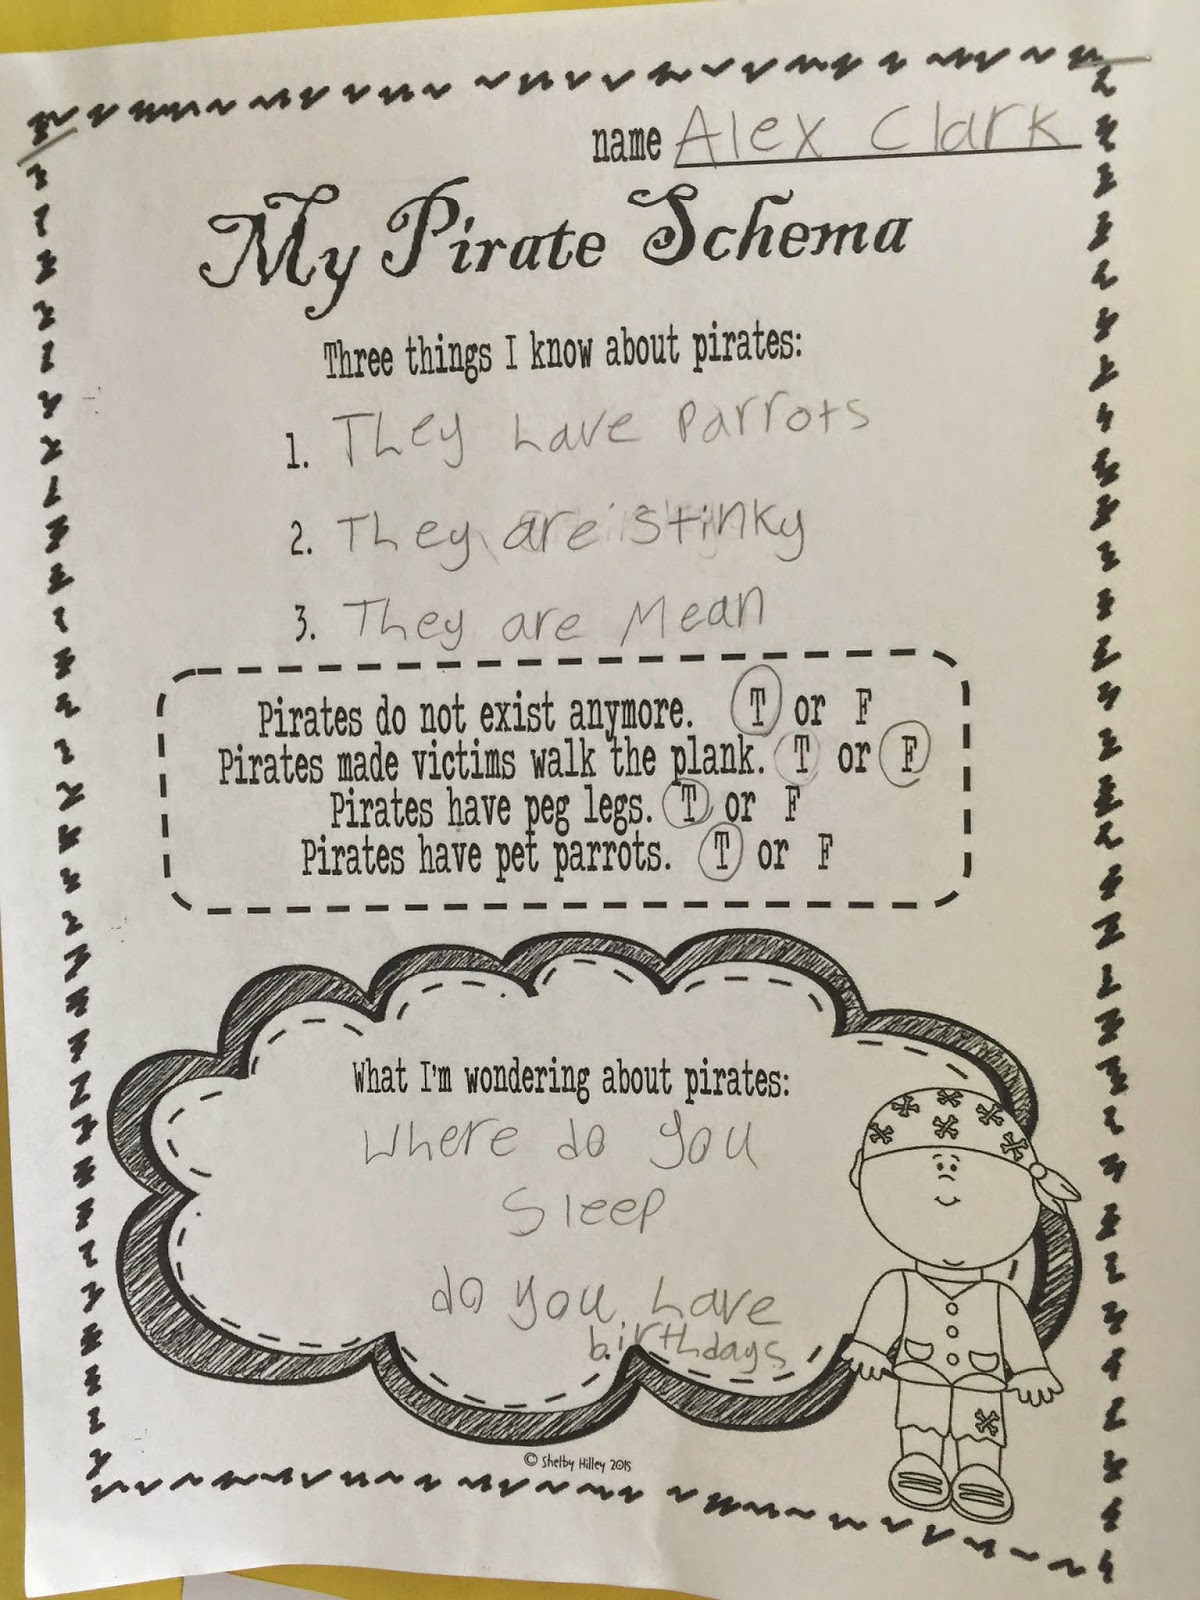 name Alex Clark
My Pirate Schema
Three things I know about pirates:
1. They have parrots
2. They are stinky
3. They are Mean
Pirates do not exist anymore. T or F
Pirates made victims walk the plank. T or F
Pirates have peg legs. T or F
Pirates have pet parrots. T or F
What I'm wondering about pirates:
Where do you
Sleep
do you have
birthdays
© Shelby Hilley 2015